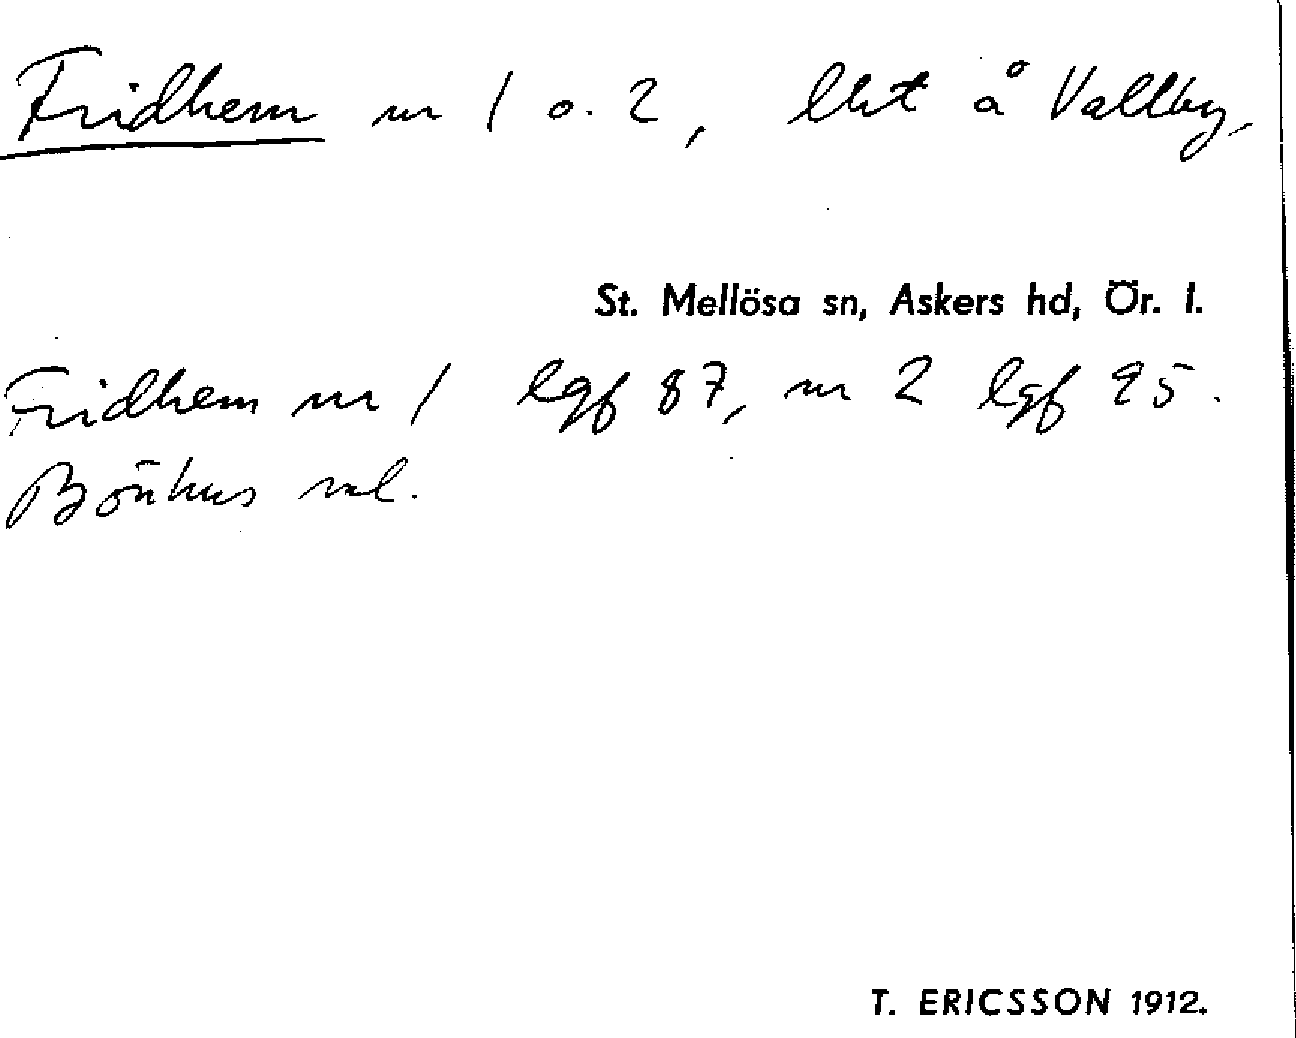 Fridhem nr 1 o. 2, lht å Vallby,
St. Mellösa sn, Askers hd, Ör. l.
Fridhem nr 1 lgf 87, nr 2 lgf 95.
Bönhus
T. ERICSSON 1912.